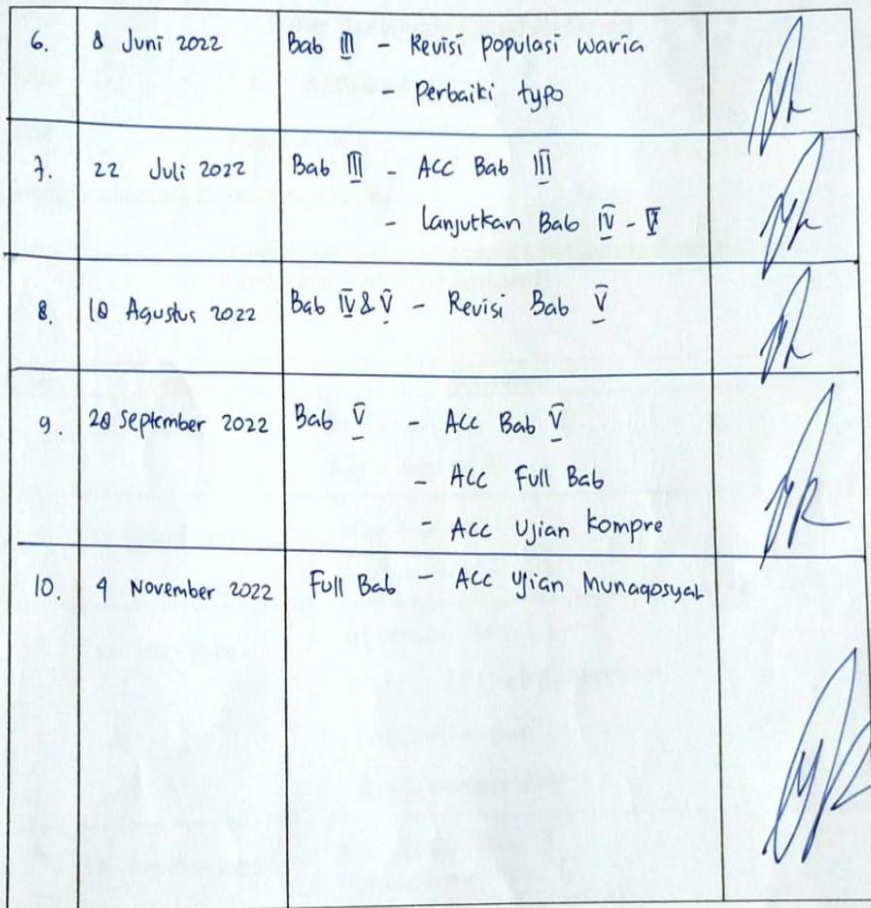 6. 8 Juni 2022 Bab III - Revisi populasi waria
- Perbaiki typo
7. 22 Juli 2022 Bab III - ACC Bab III
- Lanjutkan Bab IV - V
8. 10 Agustus 2022 Bab IV & V - Revisi Bab V
9. 20 September 2022 Bab V - ACC Bab V
- ACC Full Bab
- ACC Ujian kompre
10. 4 November 2022 Full Bab - ACC Ujian Munaqosyah